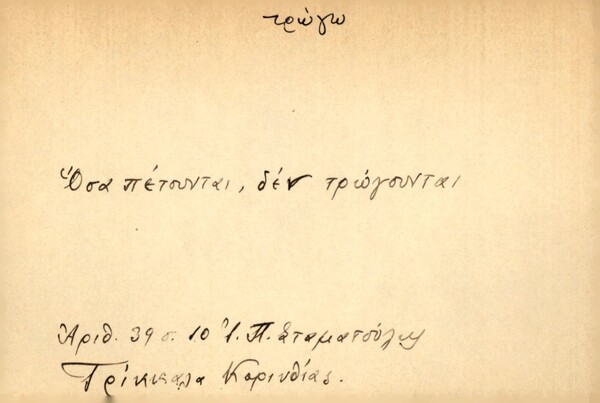 τρώγω
Ὅσα πέτουνται, δέν τρώγουνται
Ἀριθ. 39 σ. 10 Ἰ. Π. Σταματούλη
Τρίκκαλα Κορινθίας.